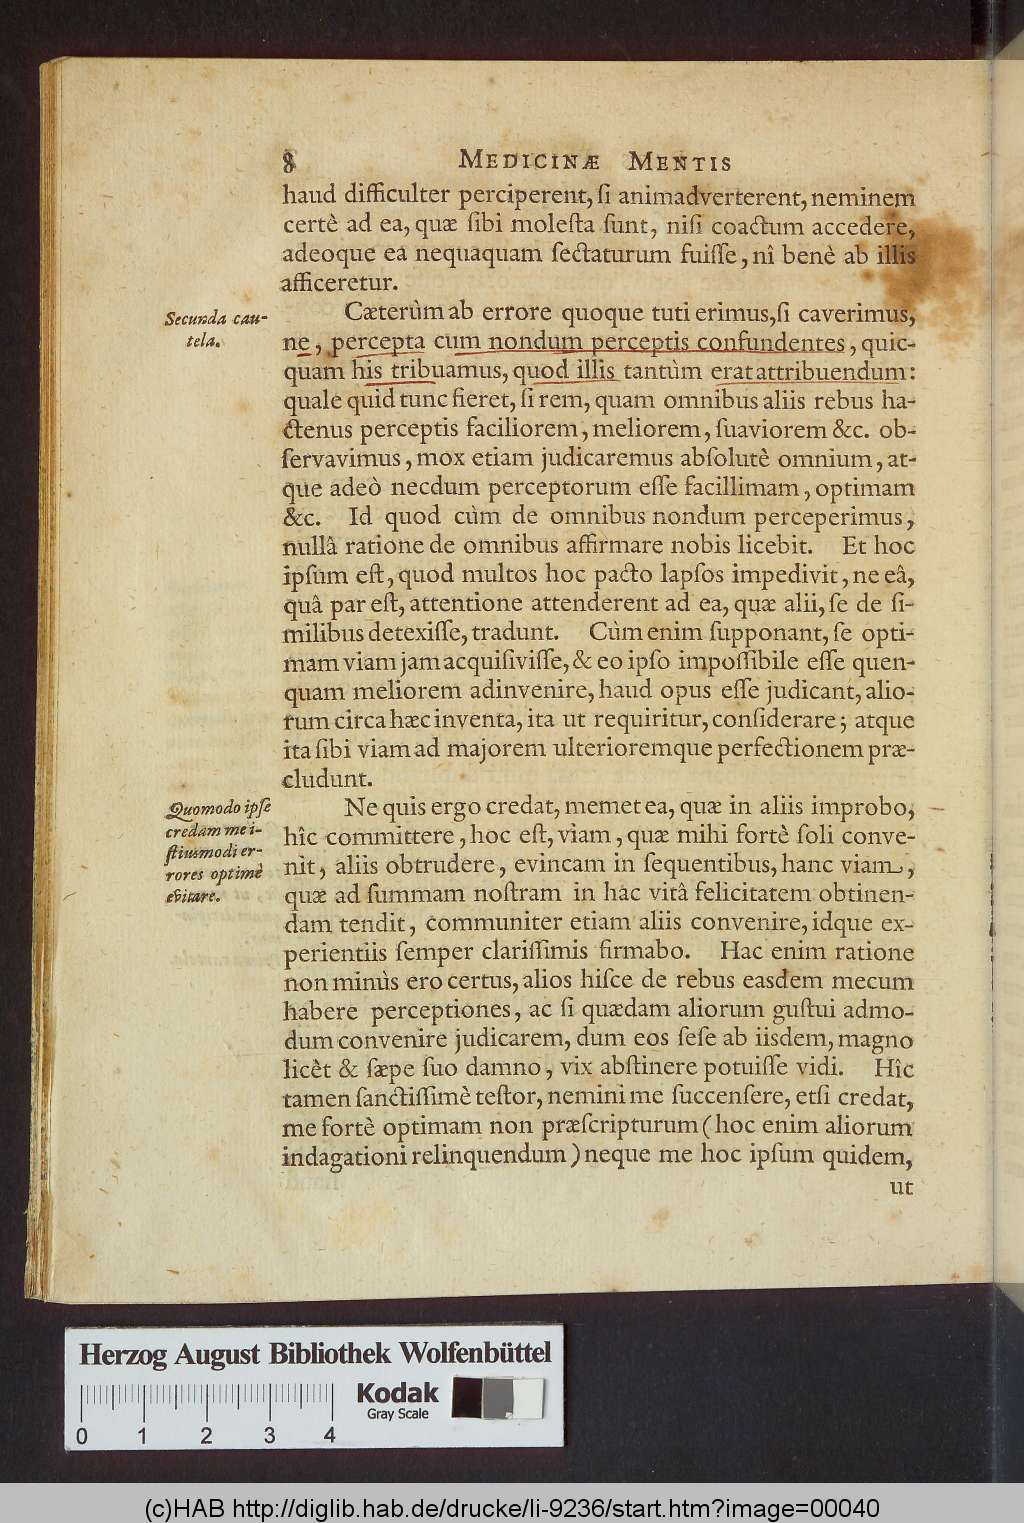 8 MEDICINÆ MENTIS
haud difficulter perciperent, ſi animadverterent, neminem
certè ad ea, quæ ſibi moleſta ſunt, niſi coactum accedere,
adeoque ea nequaquam ſectaturum fuiſſe, nî benè ab illis
afficeretur.
Secunda cau-
tela.
Cæterùm ab errore quoque tuti erimus, ſi caverimus,
ne, percepta cum nondum perceptis confundentes, quic-
quam his tribuamus, quod illis tantùm erat attribuendum:
quale quid tunc fieret, ſi rem, quam omnibus aliis rebus ha-
ctenus perceptis faciliorem, meliorem, ſuaviorem &c. ob-
ſervavimus, mox etiam judicaremus abſolutè omnium, at-
que adeò necdum perceptorum eſſe facillimam, optimam
&c. Id quod cùm de omnibus nondum perceperimus,
nullâ ratione de omnibus affirmare nobis licebit. Et hoc
ipſum eſt, quod multos hoc pacto lapſos impedivit, ne eâ,
quâ par eſt, attentione attenderent ad ea, quæ alii, ſe de ſi-
milibus detexiſſe, tradunt. Cùm enim ſupponant, ſe opti-
mam viam jam acquiſiviſſe, & eo ipſo impoſſibile eſſe quen-
quam meliorem adinvenire, haud opus eſſe judicant, alio-
rum circa hæc inventa, ita ut requiritur, conſiderare; atque
ita ſibi viam ad majorem ulterioremque perfectionem præ-
cludunt.
Quomodo ipſe
credam me i-
ſtiusmodi er-
rores optimè
evitare.
Ne quis ergo credat, memet ea, quæ in aliis improbo,
hîc committere, hoc eſt, viam, quæ mihi fortè ſoli conve-
nit, aliis obtrudere, evincam in ſequentibus, hanc viam,
quæ ad ſummam noſtram in hac vitâ felicitatem obtinen-
dam tendit, communiter etiam aliis convenire, idque ex-
perientiis ſemper clariſſimis firmabo. Hac enim ratione
non minùs ero certus, alios hiſce de rebus easdem mecum
habere perceptiones, ac ſi quædam aliorum guſtui admo-
dum convenire judicarem, dum eos ſeſe ab iisdem, magno
licèt & ſæpe ſuo damno, vix abſtinere potuiſſe vidi. Hîc
tamen ſanctiſſimè teſtor, nemini me ſuccenſere, etſi credat,
me fortè optimam non præſcripturum (hoc enim aliorum
indagationi relinquendum) neque me hoc ipſum quidem,
ut
Herzog August Bibliothek Wolfenbüttel
Kodak
Gray Scale
0 1 2 3 4
(c)HAB http://diglib.hab.de/drucke/li-9236/start.htm?image=00040